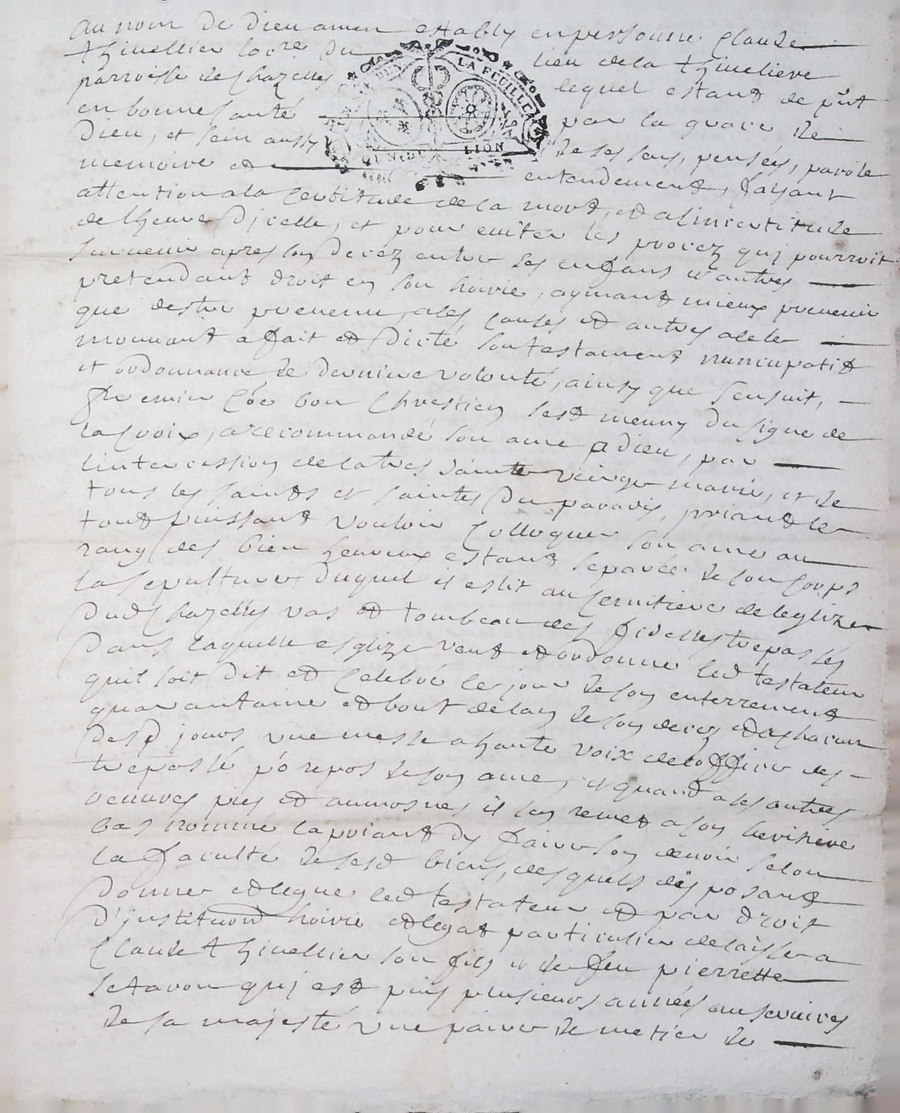 au nom de dieu amen estably en personne Claude
thivellier laire du lieu de la thiveliere
parroisse de Chazelles lequel estant de pnt
en bonne santé par la grace de
Dieu, et sein aussy de ses sens, pensées, parole
memoire et entendement, faisant
attention a la certitude de la mort, et a lincertitude
de lheure dicelle, et pour eviter les procez quj pourroit
survenir apres son decez entre ses enfans et autres
pretendant droit en son hoirie, aymant mieux prevenir
que destre prevenu, a les causes et autres a ce le
mouvant a fait et dicté son testament nuncupatif
et ordonnance de derniere volonté, ainsy que sensuit,
premier Cõe bon Chrestien sest meuny du signe de
la croix, a recommandé son ame a dieu, par
lintercession de la tres sainte vierge marie, et de
tous les saints et saintes du paradis, priant le
tout puissant vouloir Colloquer son ame au
rang des bien heureux estant separée de son corps
la sepulture duquel il eslit au cemitiere de leglize
dud Chazelles vas et tombeau des fidelles trepassés
dans laquelle esglize veut et ordonne led testateur
quil soit dit et celebré le jour de son enterrement
quarantaine et bout de lan de son decez et a chacun
desd jours une messe a haute voix de loffice des
trepassé po repos de son ame, et quand a ses autres
oeuvres pies et aumosnes il sen remet a son heritiere
bas nommé la priant dy faire son devoir selon
la faculté de sesd biens, desquels disposant
donne et legue led testateur et par droit
d'institution hoirie et legat particulier delaisse a
Claude thivellier son fils et de feu pierrette
setavon quj est puis plusieurs années au services
de sa majesté une paire de metier de
LA FEUILLE
GEN DE LION